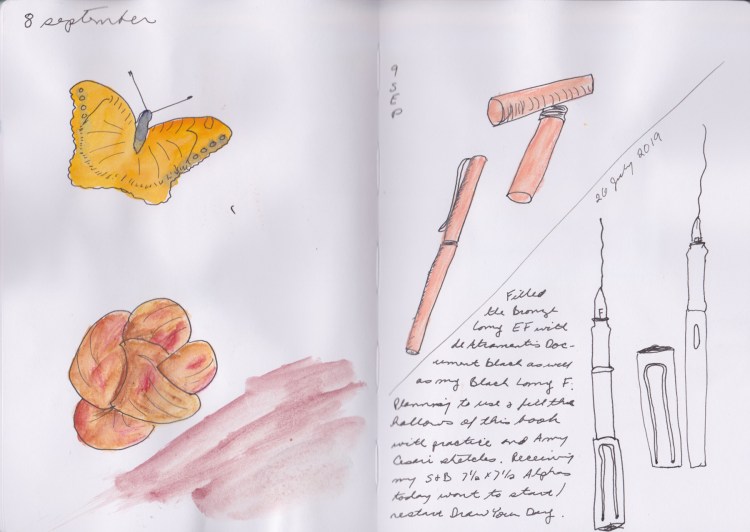 8 september
9
S
E
P
26 July 2019
Filled
the Bronze
Lamy EF with
de Atramentis Doc-
ument black as well
as my Black Lamy F.
Planning to use & fill the
hollows of this book
with practice and Amy
sketches. Receiving
my S&B 7½ x 7½ Alpha
today want to start/
restart Draw Your Day.
F